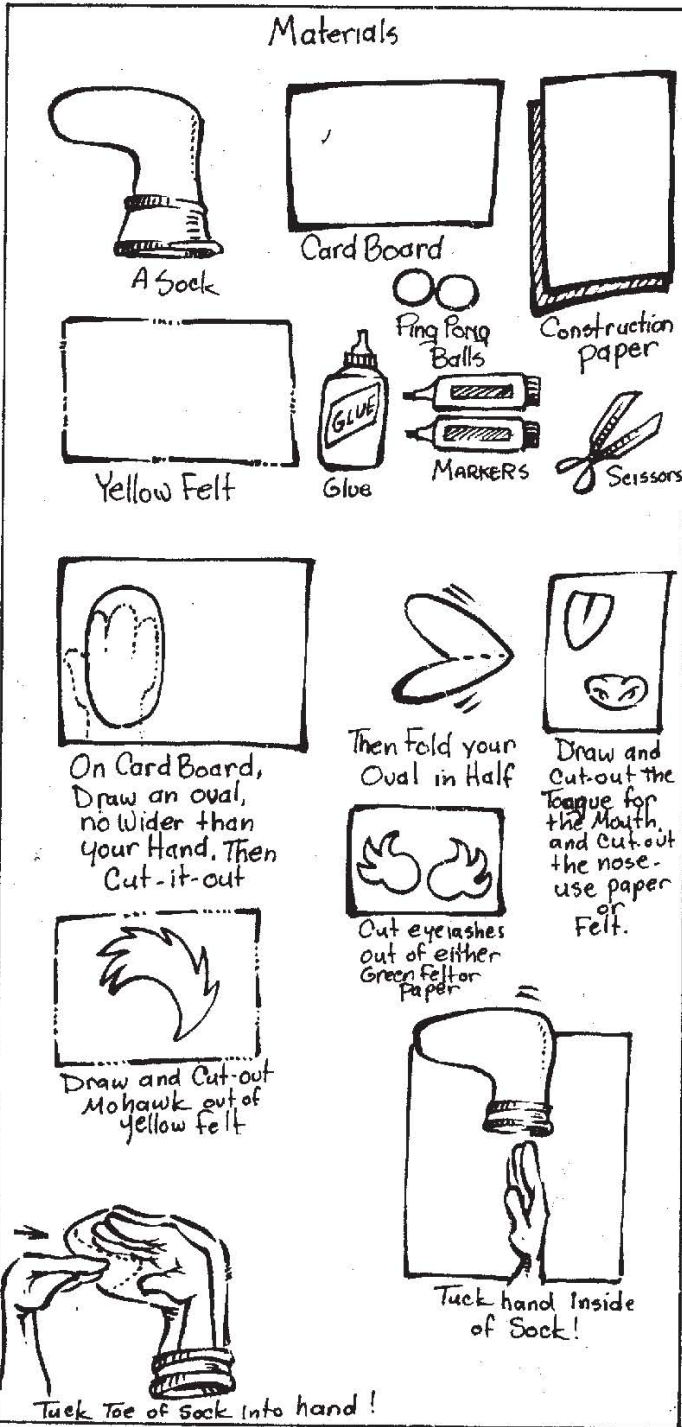 Materials
A Sock
Card Board
Construction
Paper
Ping Pong
Balls
Yellow Felt
GLUE
Glue
MARKERS
Scissors
On Card Board,
Draw an oval,
no Wider than
your Hand. Then
Cut-it-out
Then Fold your
Oval in Half
Draw and
Cut-out the
Tongue for
the Mouth,
and Cut-out
the nose-
use paper
or
Felt.
Cut eyelashes
out of either
Green Felt or
Paper
Draw and Cut-out
Mohawk out of
yellow felt
Tuck hand Inside
of Sock!
Tuck Toe of Sock Into hand!